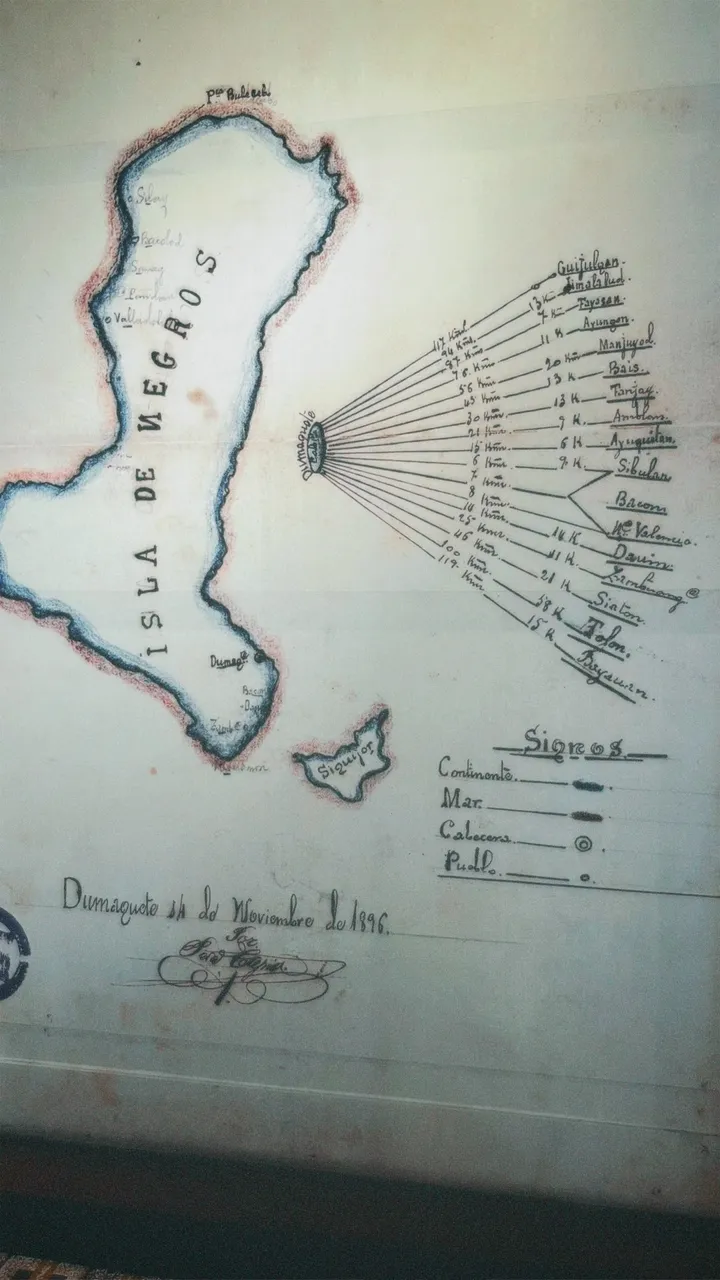 Pta
Silay
Bacolod
Valladolid
ISLA DE NEGROS
Dumagte
Siquijor
Dumaguete
117 Kmt. Guijulgan.
94 Kmt. 13 Km Jimalalud.
87 Km. 7 Km Tayasan.
76 Km. 11 K Ayungon.
56 Km. 20 Km Manjuyod.
43 Km. 13 K Bais.
30 Km. 13 K Tanjay.
21 Km. 9 K. Amblan.
15 Km. 6 K Ayuquitan.
6 Km. 9 K. Sibulan
7 Km. Bacom
8 Km. Na Valencia.
14 Km. Dauin.
25 Kmt. 14 K 11 K. Zamboang
46 Km. 21 K Siaton.
100 Km. 58 K Tolon.
119. Km. 15 K Bayauan.
Signos.
Continente.
Mar.
Cabecera
Pueblo.
Dumaguete 14 de Noviembre de 1896.